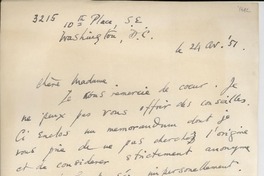 3215 10th Place, S.E.
Washington, D.C.
le 24 Avr. '51
Chère Madame
Je vous remercie de coeur. Je
ne peux pas vous offrir des conseilles.
Ci enclos un memorandum dont je
vous prie de ne pas cherchez l'origine
et de considerer strictement anonyme
impersonellement.